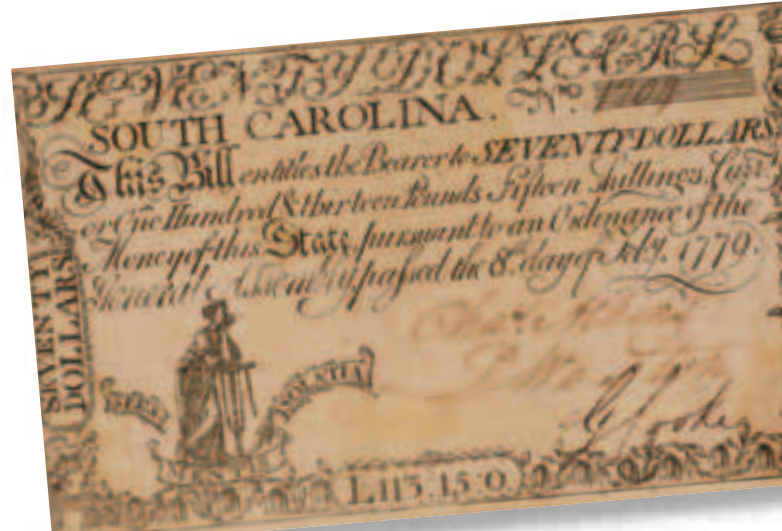 SEVENTY DOLLARS
SOUTH CAROLINA. No.
This Bill entitles the Bearer to SEVENTY DOLLARS
or One Hundred & thirteen Pounds Fifteen Shillings, Curr.t
Money of this State, pursuant to an Ordinance of the
General Assembly passed the 8.th day of Feb.y 1779.
SEVENTY
DOLLARS
L113.15.0